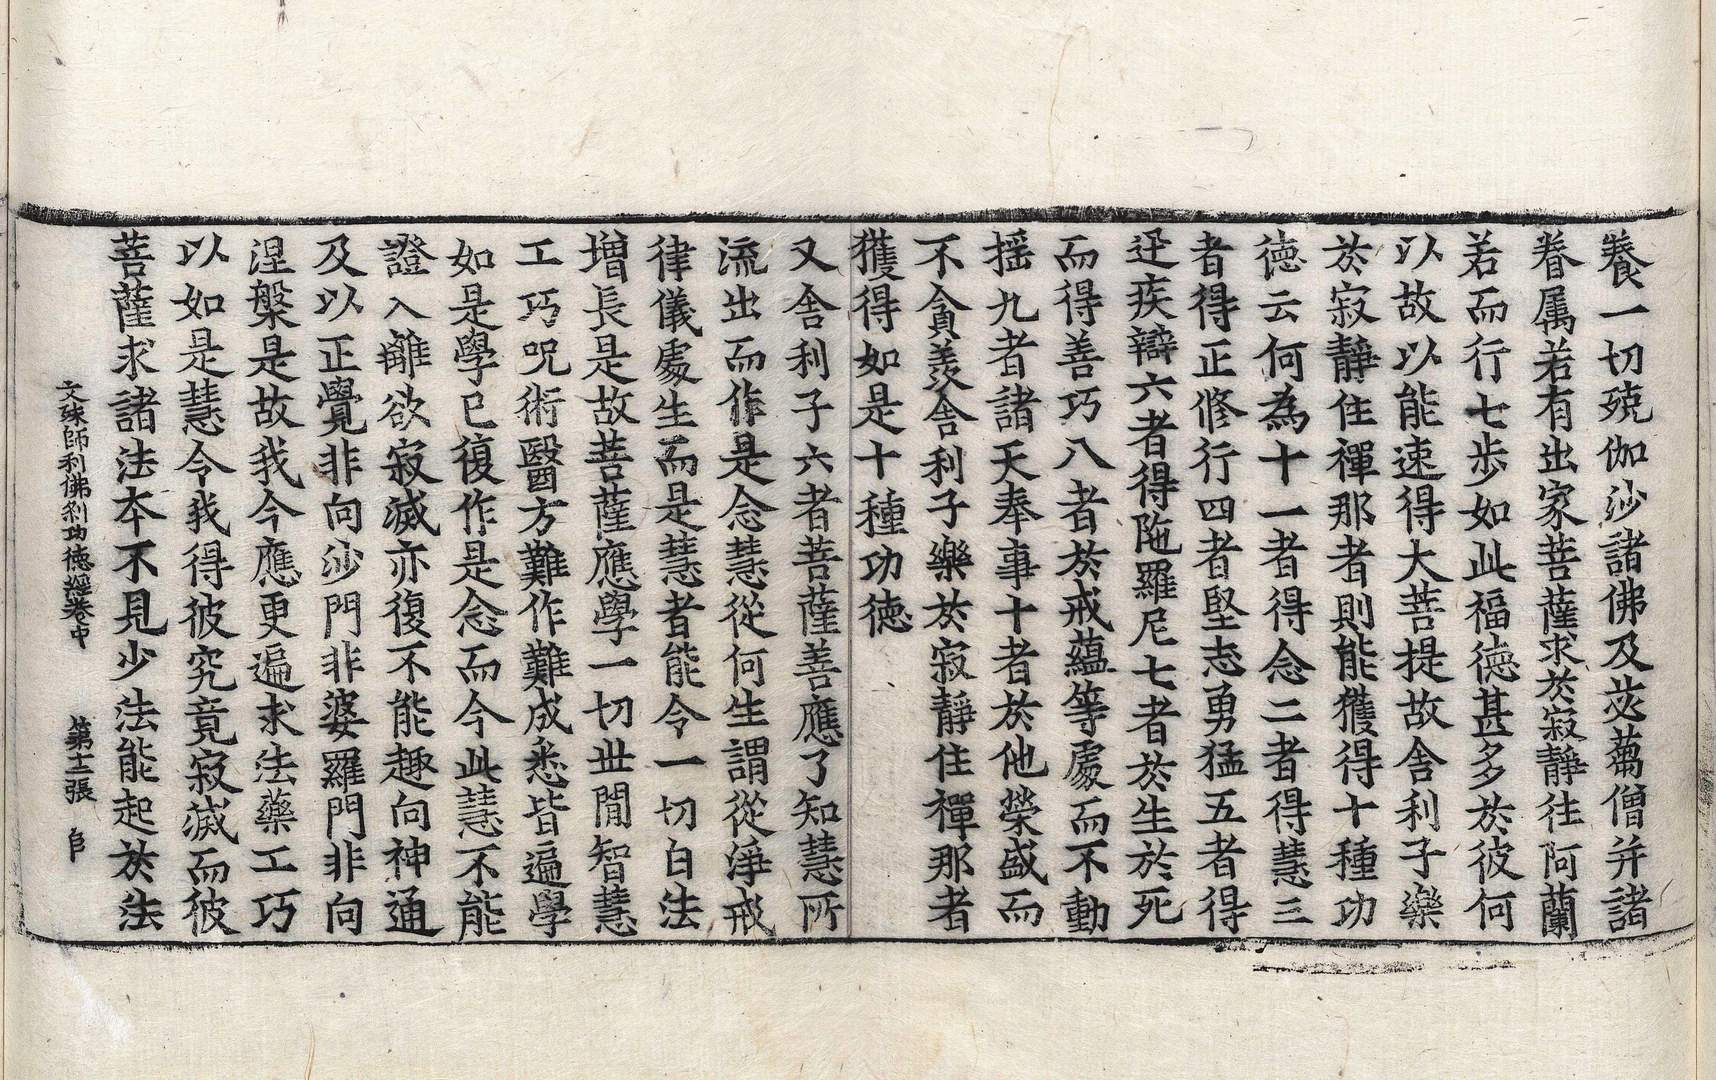 養一切殑伽沙諸佛及苾蒭僧并諸
眷属若有出家菩薩求於寂靜往阿蘭
若而行七步如此福德甚多於彼何
以故以能速得大菩提故舍利子樂
於寂靜住禪那者則能獲得十種功
德云何為十一者得念二者得慧三
者得正修行四者堅志勇猛五者得
迅疾辯六者得陁羅尼七者於生於死
而得善巧八者於戒蘊等處而不動
揺九者諸天奉事十者於他榮盛而
不貪羡舍利子樂於寂靜住禪那者
獲得如是十種功德
又舍利子六者菩薩善應了知慧所
流出而作是念慧從何生謂從淨戒
律儀處生而是慧者能令一切白法
增長是故菩薩應學一切世間智慧
工巧呪術醫方難作難成悉皆遍學
如是學已復作是念而今此慧不能
證入離欲寂滅亦復不能趣向神通
及以正覺非向沙門非婆羅門非向
涅槃是故我今應更遍求法藥工巧
以如是慧令我得彼究竟寂滅而彼
菩薩求諸法本不見少法能起於法
文殊師利佛刹功德經卷中 第十二張 㠯